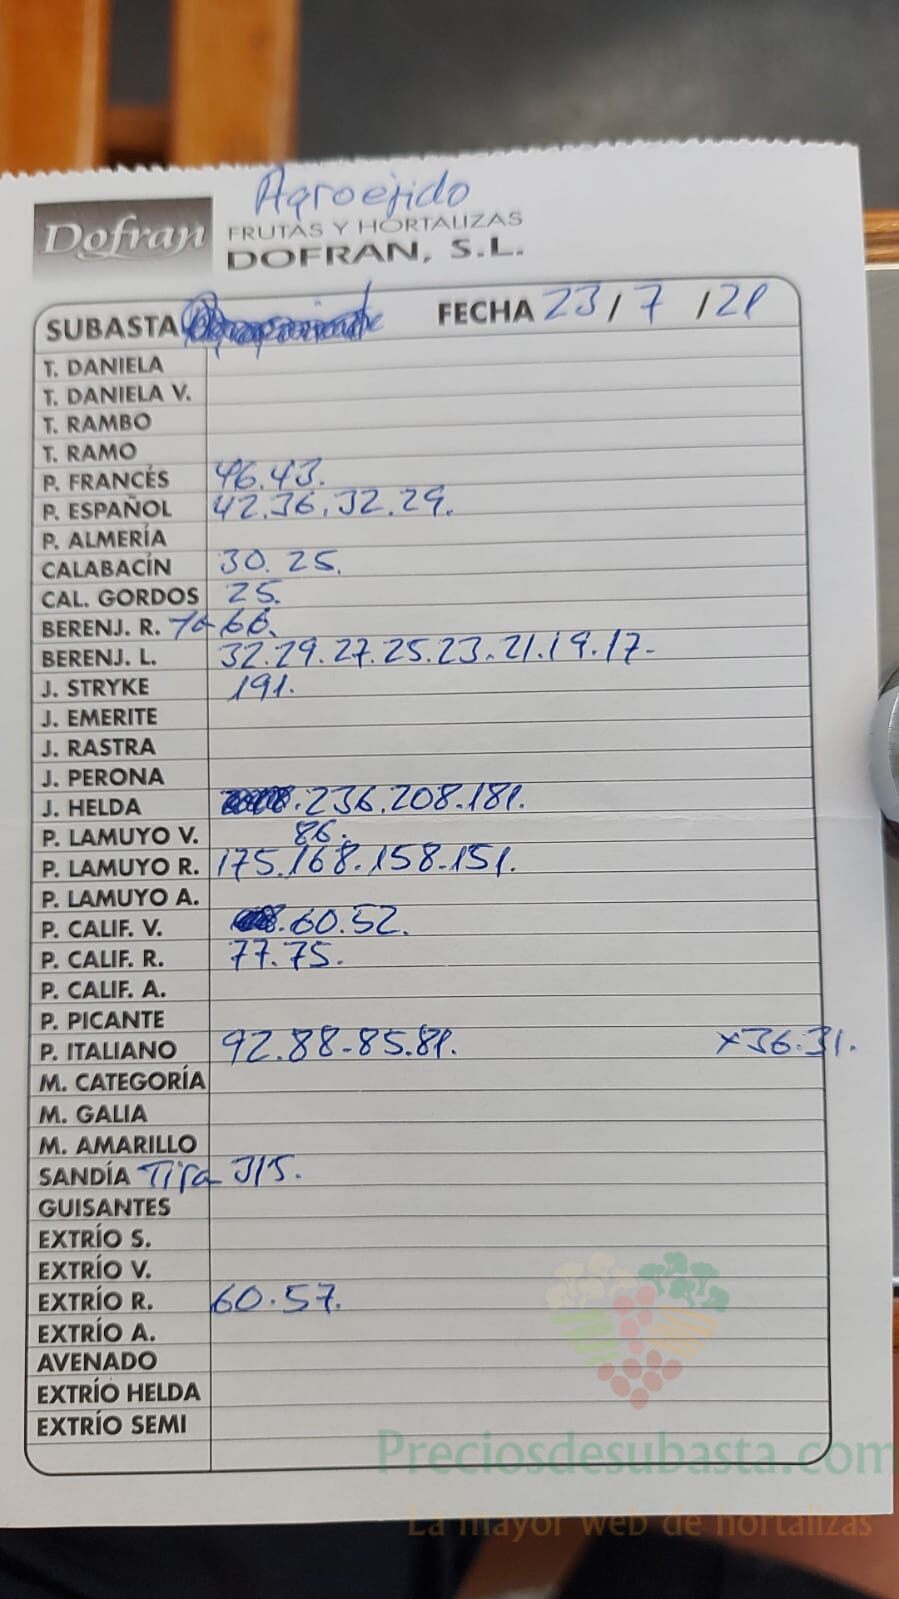 Agroejido
Dofran
FRUTAS Y HORTALIZAS
DOFRAN, S.L.
SUBASTA FECHA 23/7/21
T. DANIELA
T. DANIELA V.
T. RAMBO
T. RAMO
P. FRANCÉS 46.43.
P. ESPAÑOL 42.36.32.29.
P. ALMERÍA
CALABACÍN 30.25.
CAL. GORDOS 25.
BERENJ. R. 66.
BERENJ. L. 32.29.27.25.23.21.19.17-
J. STRYKE 191.
J. EMERITE
J. RASTRA
J. PERONA
J. HELDA .236.208.181.
P. LAMUYO V. 86.
P. LAMUYO R. 175.168.158-151.
P. LAMUYO A.
P. CALIF. V. .60.52.
P. CALIF. R. 77.75.
P. CALIF. A.
P. PICANTE
P. ITALIANO 92.88-85.81. x36.31.
M. CATEGORÍA
M. GALIA
M. AMARILLO
SANDÍA
GUISANTES
EXTRÍO S.
EXTRÍO V.
EXTRÍO R. 60.57.
EXTRÍO A.
AVENADO
EXTRÍO HELDA
EXTRÍO SEMI
Preciosdesubasta.com
La mayor web de hortalizas